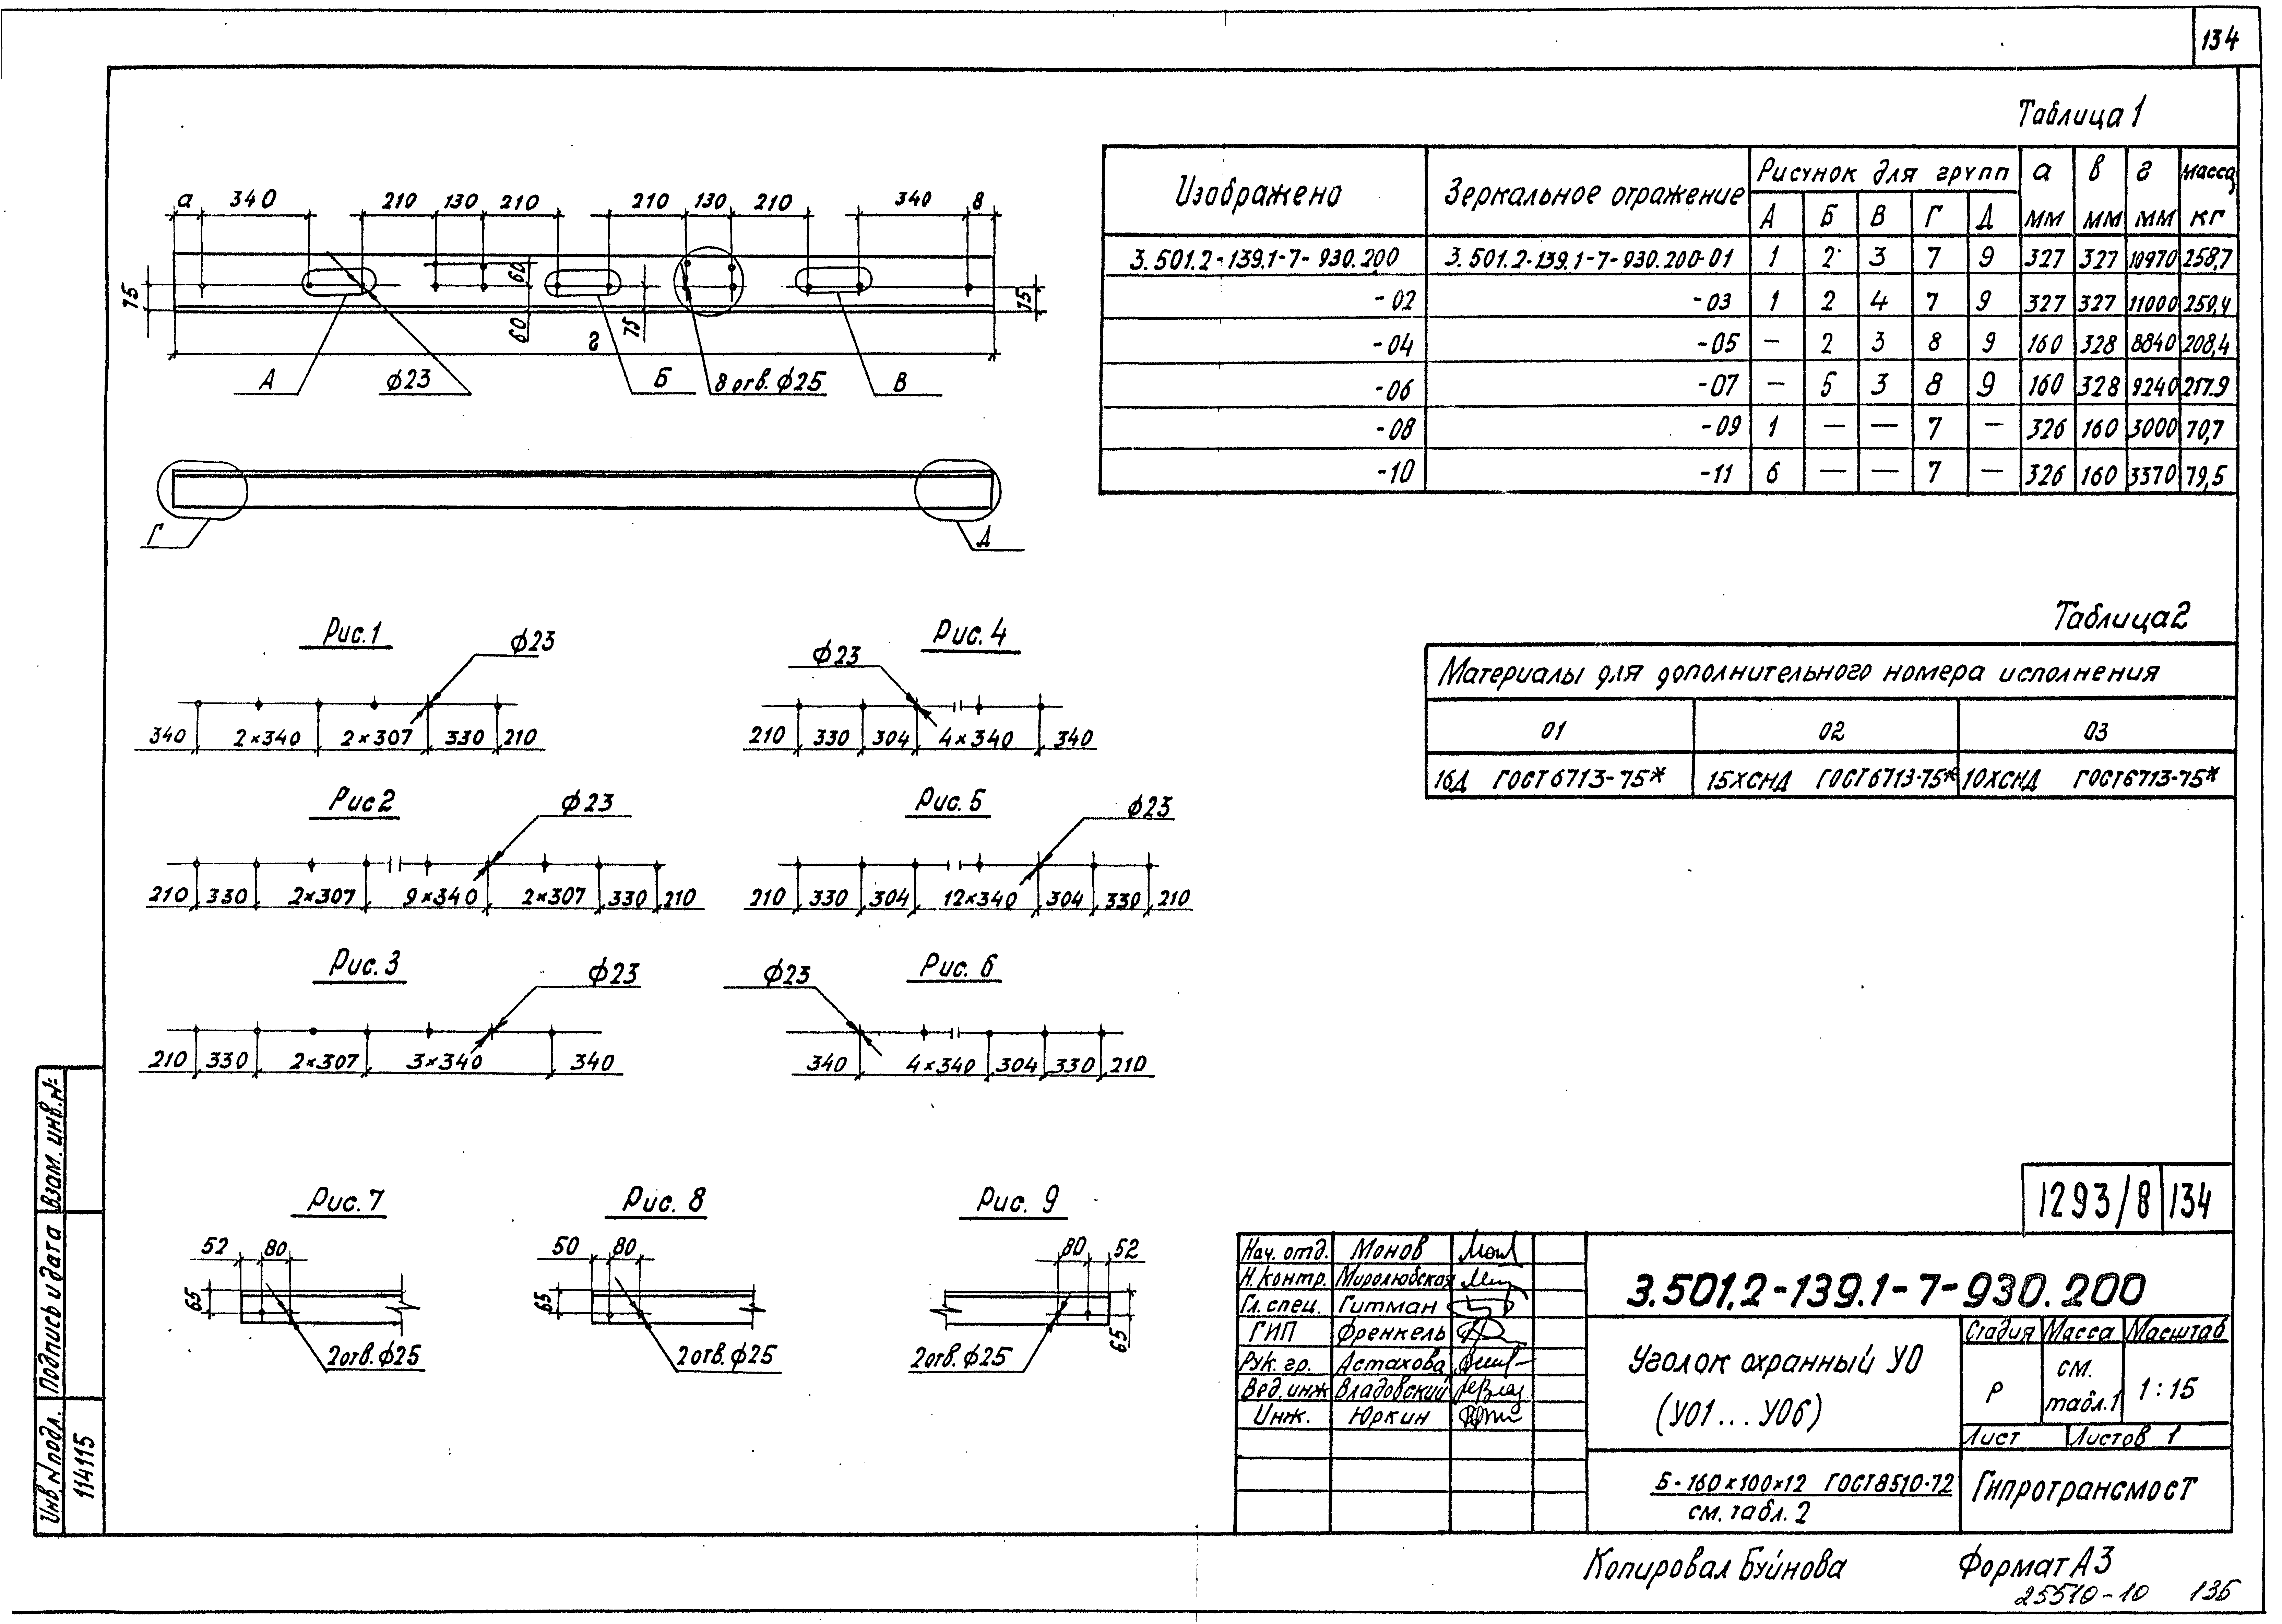 134
Таблица 1
Изображено Зеркальное отражение Рисунок для групп а в г масса
А Б В Г Д мм мм мм кг
3.501.2-139.1-7-930.200 3.501.2-139.1-7-930.200-01 1 2 3 7 9 327 327 10970 258,7
-02 -03 1 2 4 7 9 327 327 11000 259,4
-04 -05 — 2 3 8 9 160 328 8840 208,4
-06 -07 — 5 3 8 9 160 328 9240 217.9
-08 -09 1 — — 7 — 326 160 3000 70,7
-10 -11 6 — — 7 — 326 160 3370 79,5
а 340 210 130 210 210 130 210 340 в
75 60 60 75 75
г
А ф23 Б 8 отв. ф25 В
Г Д
Таблица 2
Материалы для дополнительного номера исполнения
01 02 03
16Д ГОСТ 6713-75* 15ХСНД ГОСТ 6713-75* 10ХСНД ГОСТ 6713-75*
Рис. 1 ф23
340 2×340 2×307 330 210
Рис. 4 ф23
210 330 304 4×340 340
Рис 2 ф23
210 330 2×307 9×340 2×307 330 210
Рис. 5 ф23
210 330 304 12×340 304 330 210
Рис. 3 ф23
210 330 2×307 3×340 340
Рис. 6 ф23
340 4×340 304 330 210
Рис. 7
52 80
65
2 отв. ф25
Рис. 8
50 80
65
2 отв. ф25
Рис. 9
80 52
65
2 отв. ф25
Инв. N подл. Подпись и дата Взам. инв. №
114115
1293/8 134
Нач. отд. Монов
Н. контр. Миролюбская
Гл. спец. Гитман
ГИП Френкель
Рук. гр. Астахова
Вед. инж Владовский
Инж. Юркин
3.501.2-139.1-7-930.200
Уголок охранный УО
(УО1...УО6)
Стадия Масса Масштаб
Р см. табл. 1 1:15
Лист Листов 1
Б-160×100×12 ГОСТ 8510-72
см. табл. 2
Гипротрансмост
Копировал Буйнова Формат А3
25510-10 136